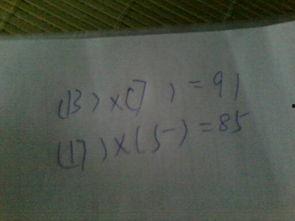 (13)×(7)=91
(17)×(5)=85